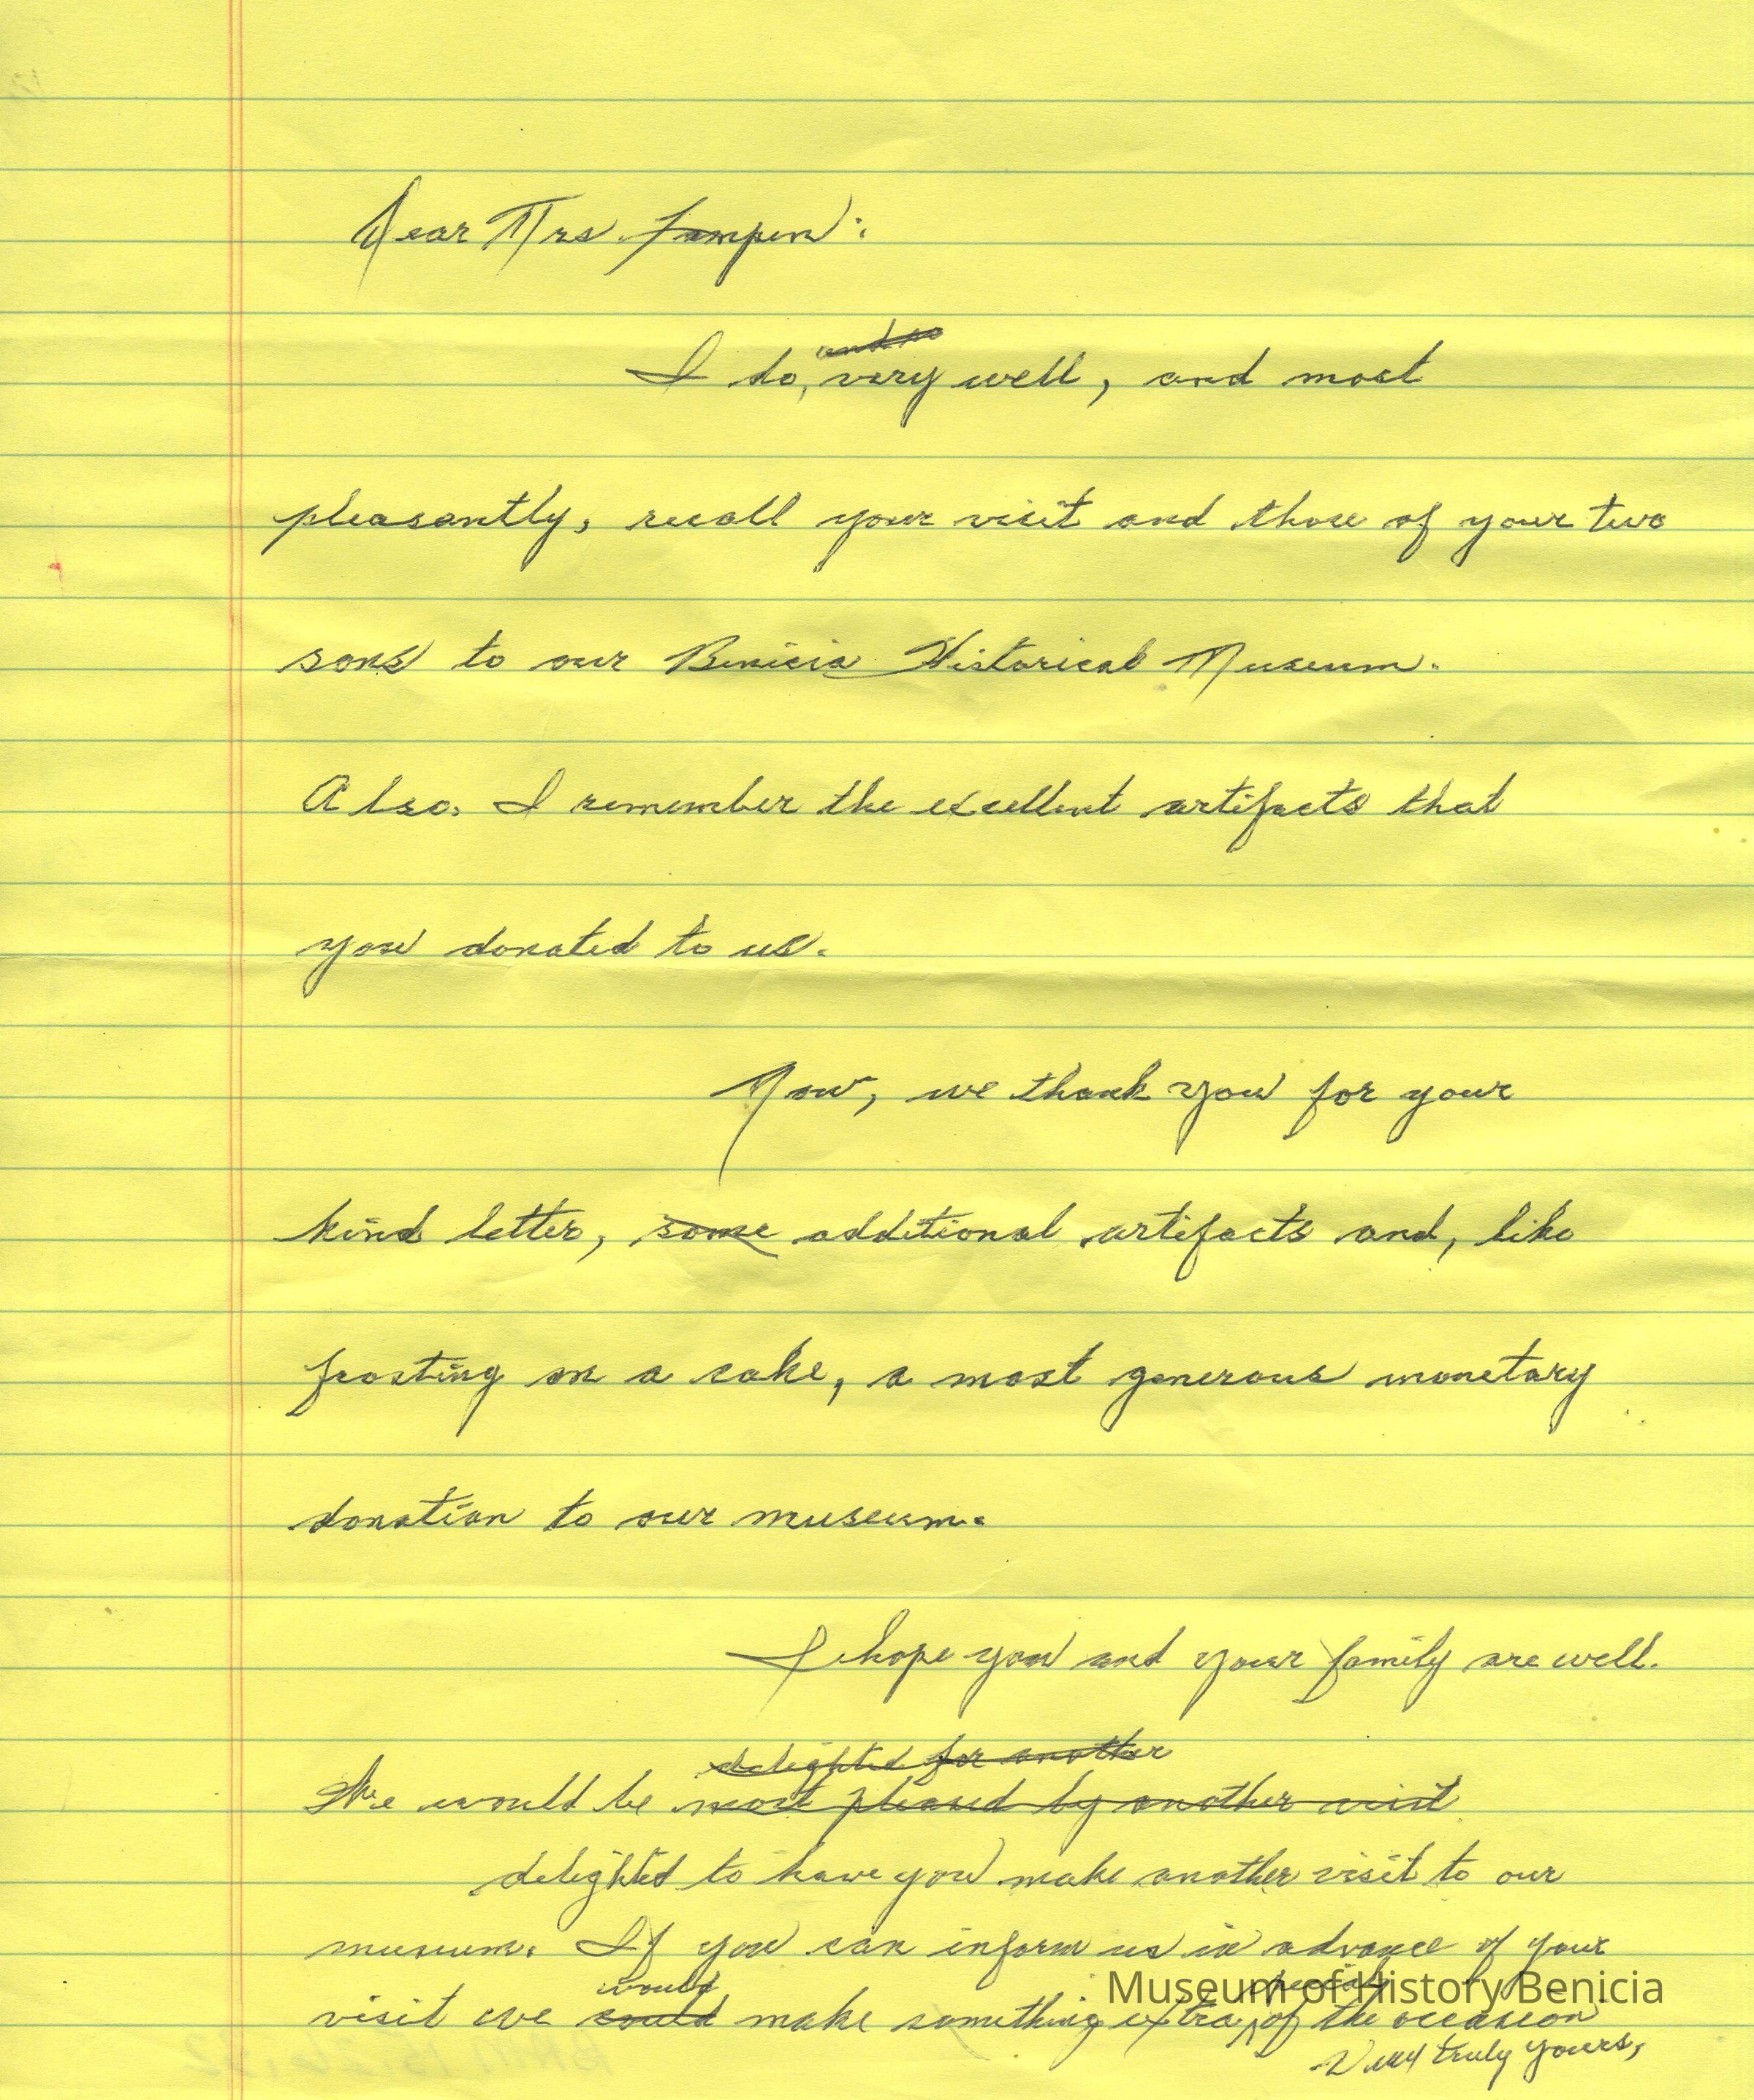 Dear Mrs Lampen:
and so
I do, very well, and most
pleasantly, recall your visit and those of your two
sons to our Benicia Historical Museum.
Also, I remember the excellent artifacts that
you donated to us.
Now, we thank you for your
kind letter, some additional artifacts and, like
frosting on a cake, a most generous monetary
donation to our museum.
I hope you and your family are well.
delighted for another
We would be most pleased by another visit
delighted to have you make another visit to our
museum. If you can inform us in advance of your
would special
visit we could make something extra of the occasion
Very truly yours,
Museum of History Benicia